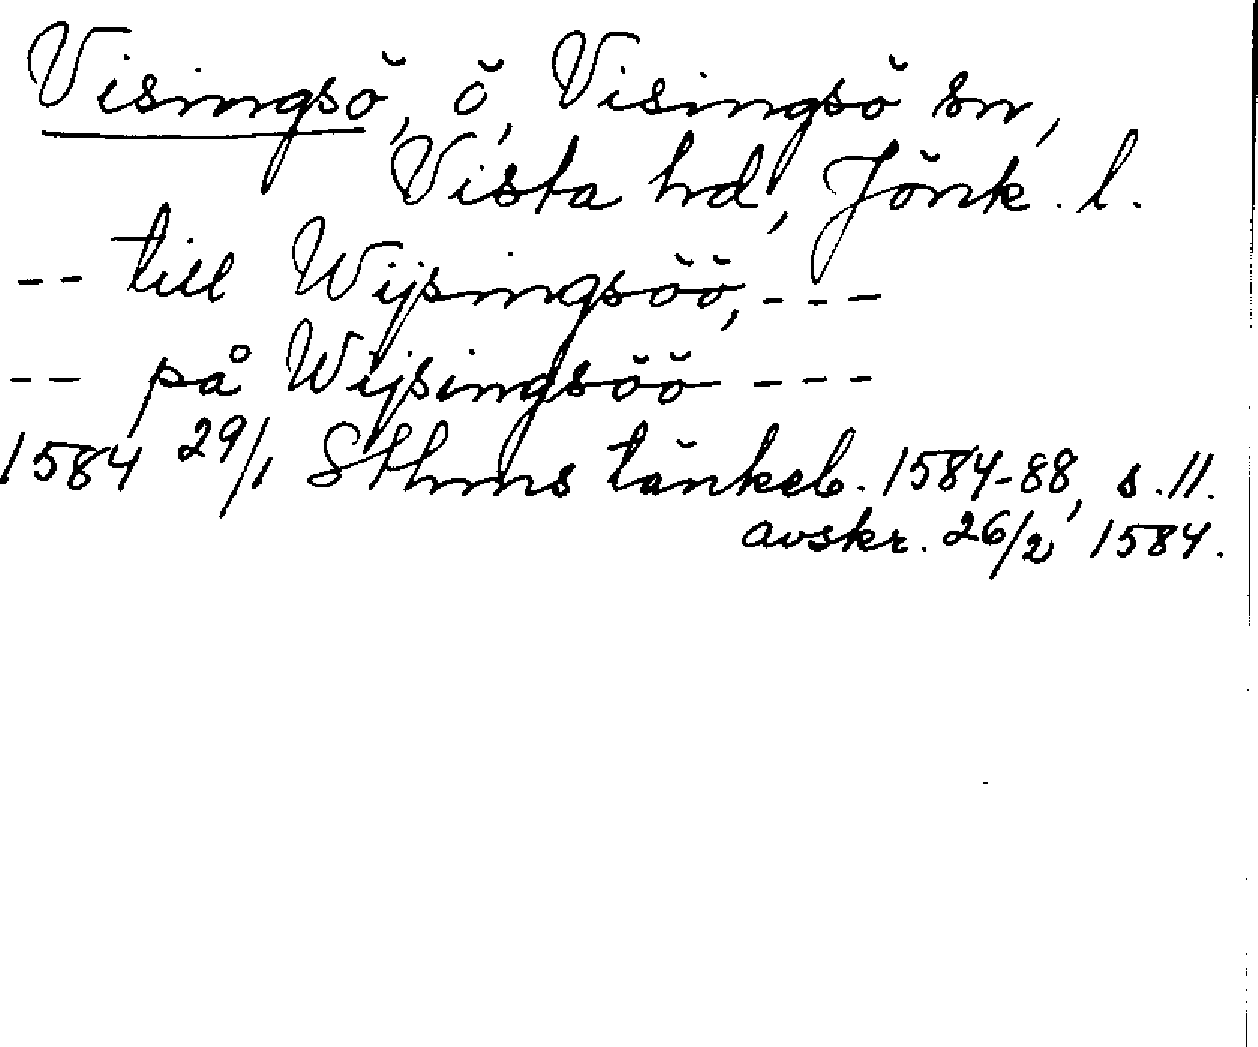 Visingsö, ö, Visingsö sn,
Vista hd, Jönk. l.
-- till Wijsingsöö, ---
-- på Wijsingsöö ---
1584 29/1 Sthms tänkeb. 1584-88, s. 11.
avskr. 26/2 1584.